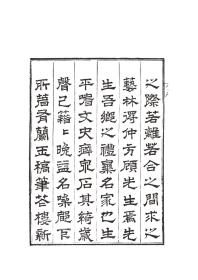 之際若離若合之間求之
藝林得仲方顧先生焉先
生吾鄉之禮名家也生
平嗜文史癖泉石其綺歲
聲已籍〻晚益名噪下
所著有蘭玉稿筆花樓新